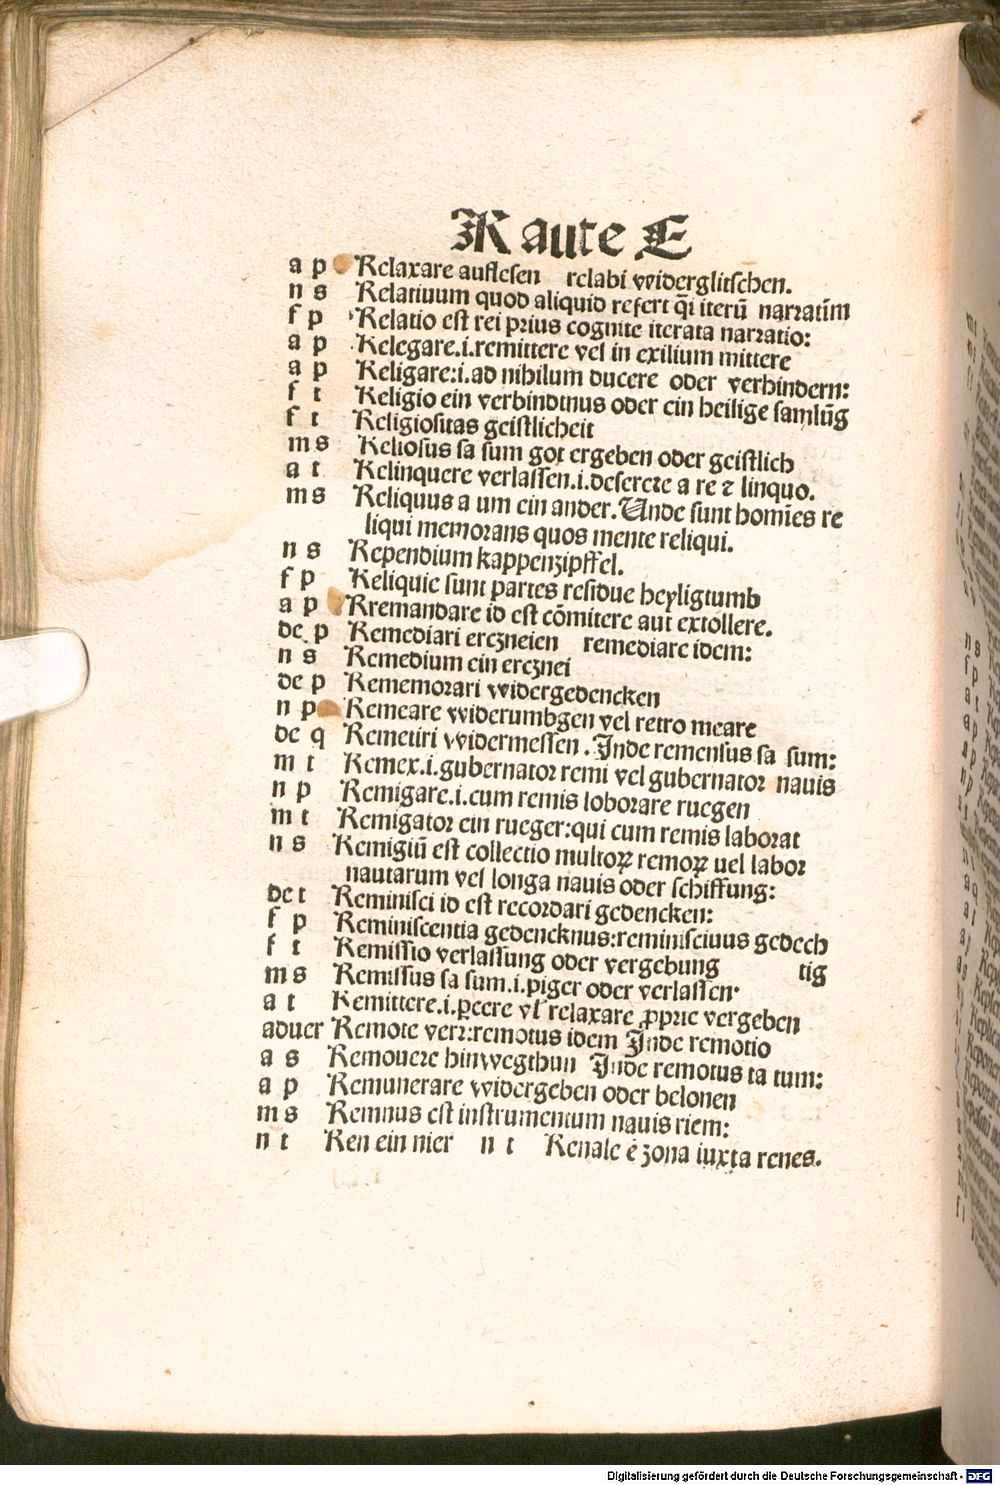 R aute E
a p Relaxare auflesen relabi widerglitschen.
n s Relatiuum quod aliquid refert q̄i iterū narratim
f p Relatio est rei prius cognite iterata narratio:
a p Relegare.i.remittere vel in exilium mittere
a p Religare:i.ad nihilum ducere oder verhindern:
f t Religio ein verbindtnus oder ein heilige samlūg
f t Religiositas geistlicheit
m s Reliosus sa sum got ergeben oder geistlich
a t Relinquere verlassen.i.deserere a re ⁊ linquo.
m s Reliquus a um ein ander. Unde sunt homīes re
liqui memorans quos mente reliqui.
n s Rependium kappenzipffel.
f p Reliquie sunt partes residue heyligtumb
a p Rremandare id est cōmitere aut extollere.
de p Remediari erczneien remediare idem:
n s Remedium ein ercznei
de p Rememorari widergedencken
n p Remeare widerumbgen vel retro meare
de q Remetiri widermessen. Inde remensus sa sum:
m t Remex.i.gubernator remi vel gubernator nauis
n p Remigare.i.cum remis loborare ruegen
m t Remigator ein rueger:qui cum remis laborat
n s Remigiū est collectio multoꝝ remoꝝ uel labor
nautarum vel longa nauis oder schiffung:
de t Reminisci id est recordari gedencken:
f p Reminiscentia gedencknus:reminisciuus gedech
f t Remissio verlassung oder vergebung tig
m s Remissus sa sum.i.piger oder verlassen·
a t Remittere.i.ꝑcere vl̄ relaxare ꝓprie vergeben
aduer Remote verr:remotus idem Inde remotio
a s Remouere hinwegthun Inde remotus ta tum:
a p Remunerare widergeben oder belonen
m s Remnus est instrumentum nauis riem:
n t Ren ein nier n t Renale ē zona iuxta renes.
Digitalisierung gefördert durch die Deutsche Forschungsgemeinschaft - DFG